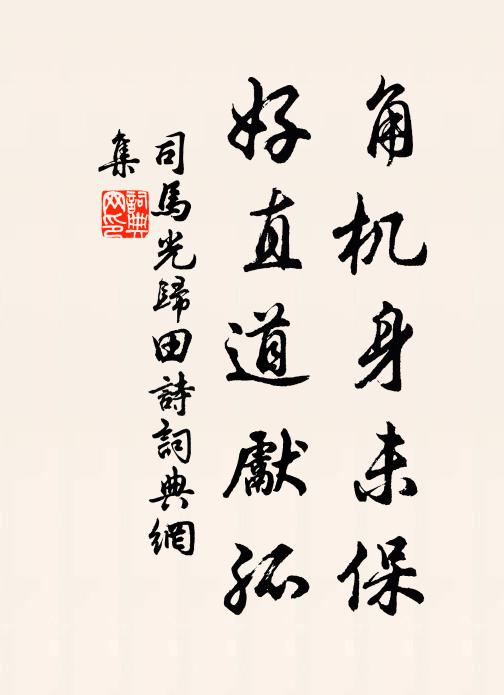 角机身未保
好直道獻孤
司馬光歸田詩詞典網
集
詞典網印